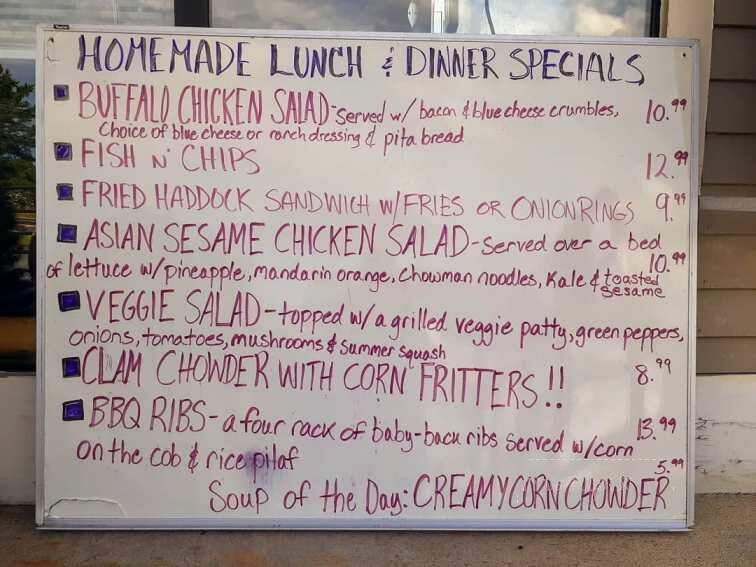 HOMEMADE LUNCH & DINNER SPECIALS
BUFFALO CHICKEN SALAD-served w/ bacon & blue cheese crumbles, 10.99
Choice of blue cheese or ranch dressing & pita bread
FISH N' CHIPS 12.99
FRIED HADDOCK SANDWICH W/FRIES OR ONION RINGS 9.99
ASIAN SESAME CHICKEN SALAD-served over a bed 10.99
of lettuce w/pineapple, mandarin orange, Chowman noodles, Kale & toasted sesame
VEGGIE SALAD-topped w/a grilled veggie patty, green peppers,
onions, tomatoes, mushrooms & summer squash
CLAM CHOWDER WITH CORN FRITTERS!! 8.99
BBQ RIBS-a four rack of baby-back ribs served w/corn 13.99
on the cob & rice pilaf 5.99
Soup of the Day: CREAMY CORN CHOWDER